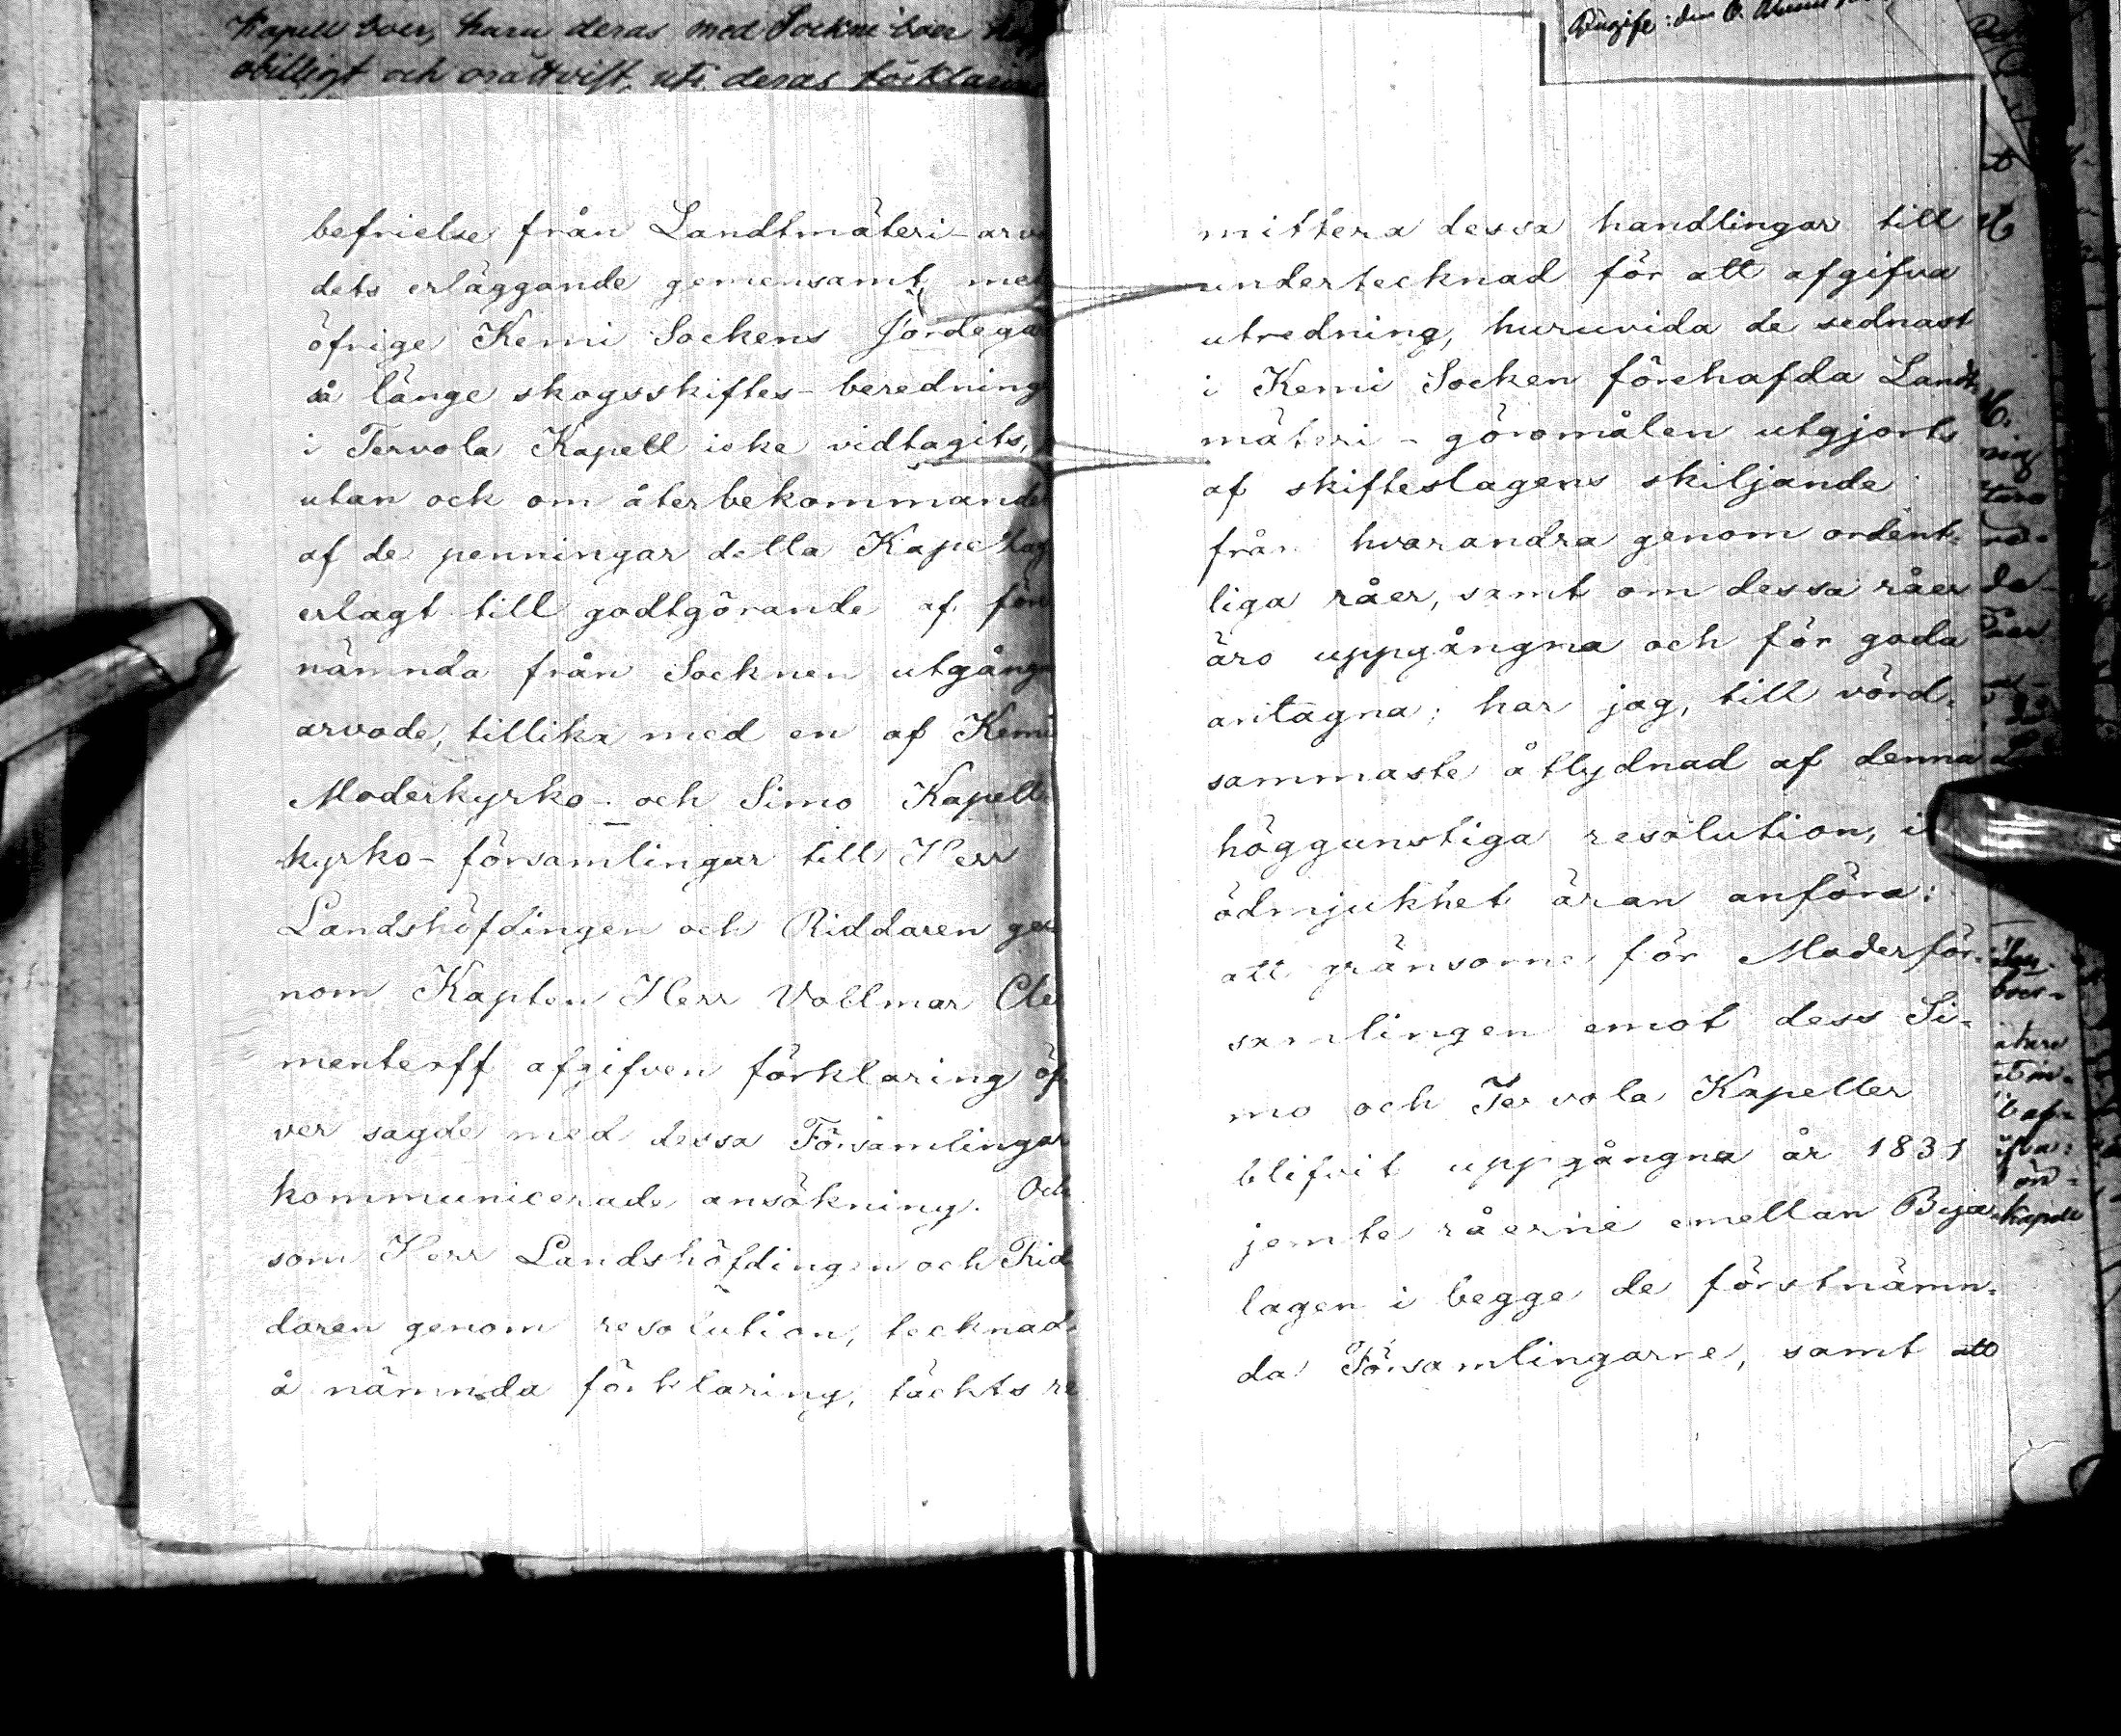 Kapell boer, haru deras med Sockne boer
obilligt och orättvist, uti deras förklarin
befrielse från Landtmäteri-arvo
dets erläggande gemensamt med
öfrige Kemi Sockens Jordega
så länge skogsskiftes-beredning
i Tervola Kapell icke vidtagits,
utan ock om återbekommande
af de penningar detta Kapellag
erlagt till godtgörande af för
nämnda från Socknen utgångna
arvode, tillika med en af Kemi
Moderkyrko- och Simo Kapell
kyrko-församlingar till Herr
Landshöfdingen och Riddaren ge
nom Kapten Herr Vollmar Cle
menteoff afgifven förklaring öf
ver sagde med dessa Församlingar
kommunicerade ansökning. Och
som Herr Landshöfdingen och Rid
daren genom resolution, tecknad
å nämnda förklaring, täckts re
mittera dessa handlingar till
undertecknad för att afgifva
utredning, huruvida de sednast
i Kemi Socken förehafda Landt
mäteri-göromålen utgjorts
af skifteslagens skiljande
från hvarandra genom ordent-
liga råer, samt om dessa råer
äro uppgångna och för goda
antagna; har jag, till vörd-
sammaste åtlydnad af denna
höggunstiga resolution, i
ödmjukhet äran anföra:
att gränsorne för Moderför-
samlingen emot dess Si-
mo och Tervola Kapeller
blifvit uppgångna år 1831
jemte råerne emellan Bya
lagen i begge de förstnämn-
da Församlingarne, samt att